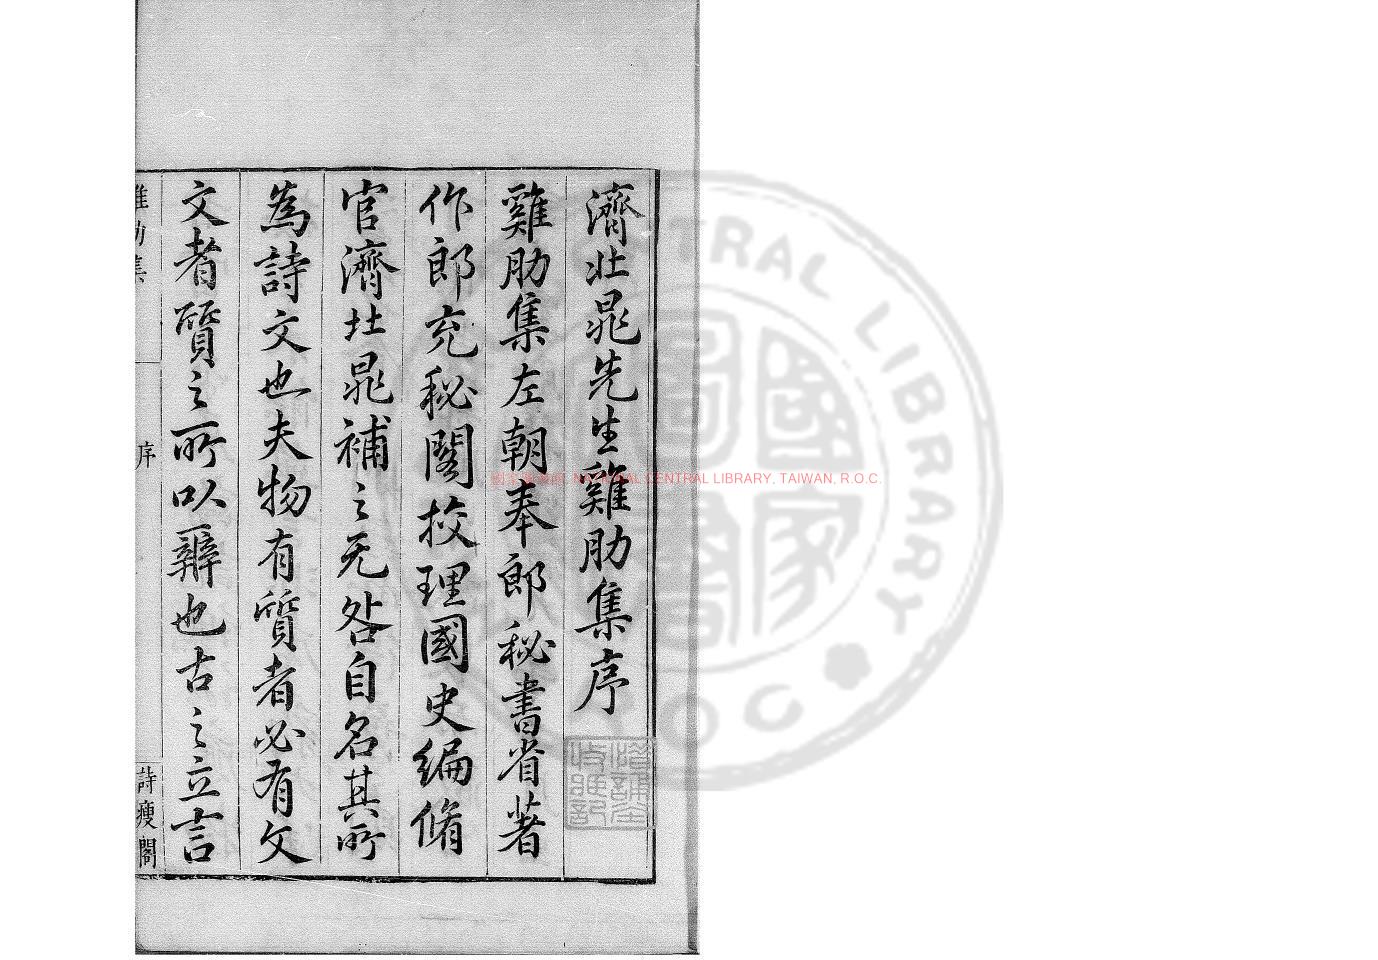 濟北晁先生雞肋集序
雞肋集左朝奉郎秘書省著
作郎充秘閣挍理國史編脩
官濟北晁補之无咎自名其所
為詩文也夫物有質者必有文
文者質之所以辨也古之立言
序
詩瘦閣
NATIONAL CENTRAL LIBRARY, TAIWAN, R.O.C.